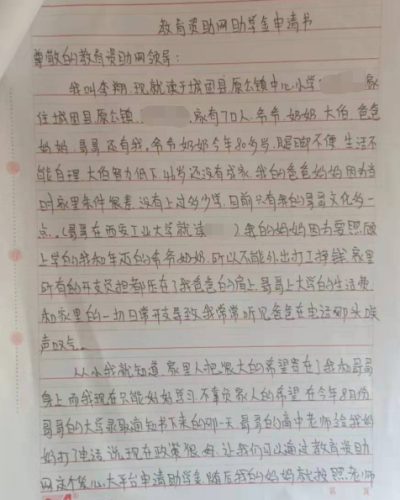 教育资助网助学金申请书
尊敬的教育资助网领导：
我叫李翔，现就读于城固县原公镇中心小学 家
住城固县原公镇， 家有7口人，爷爷、奶奶、大伯、爸爸
妈妈、哥哥还有我，爷爷奶奶今年80多岁，腿脚不便，生活不
能自理，大伯智力低下，46岁还没有成家，我的爸爸妈妈因为当
时家里条件很差，没有上过多少学，目前只有我的哥哥文化多一
点，（哥哥在西安工业大学就读 ）我的妈妈因为要照顾
上学的我和年迈的爷爷奶奶，所以不能外出打工挣钱，家里
所有的开支负担都压在了我爸爸的肩上，哥哥上大学的生活费
和家里的一切日常开支导致我常常听见爸爸在电话那头唉
声叹气。
从小我就知道，家里人把很大的希望寄在了我和哥哥
身上，而我现在只能好好学习，不辜负家人的希望，在今年8月份
哥哥的大学录取通知书下来的那一天，哥哥的高中老师给我妈
妈打电话说，现在政策很好，让我们可以通过教育资助
网这个爱心大平台申请助学金，随后我的妈妈就按照老师